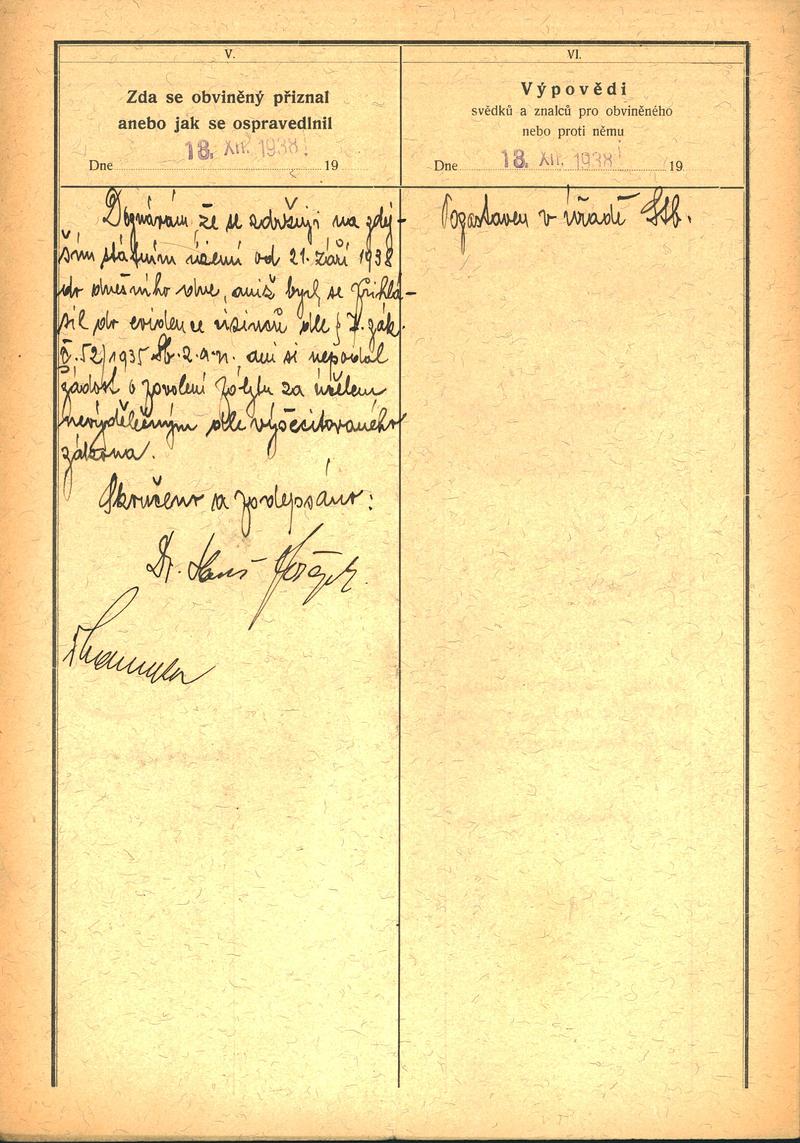 V.
Zda se obviněný přiznal
anebo jak se ospravedlnil
Dne 18. XII. 1938! 19
Doznávám že se zdržuji na zdej-
ším státním území od 21. září 1938
do dnešního dne, aniž bych se přihlá-
sil do evidence cizinců dle § 7. zák.
č. 52/1935 Sb. z. a n. ani si nepodal
žádost o povolení pobytu za účelem
nevýdělečným dle výšecitovaného
zákona.
Skončeno a podepsáno:
Dr. Hans
VI.
Výpovědi
svědků a znalců pro obviněného
nebo proti němu
Dne 18. XII. 1938! 19
Pozastaven v úřadě Stb.